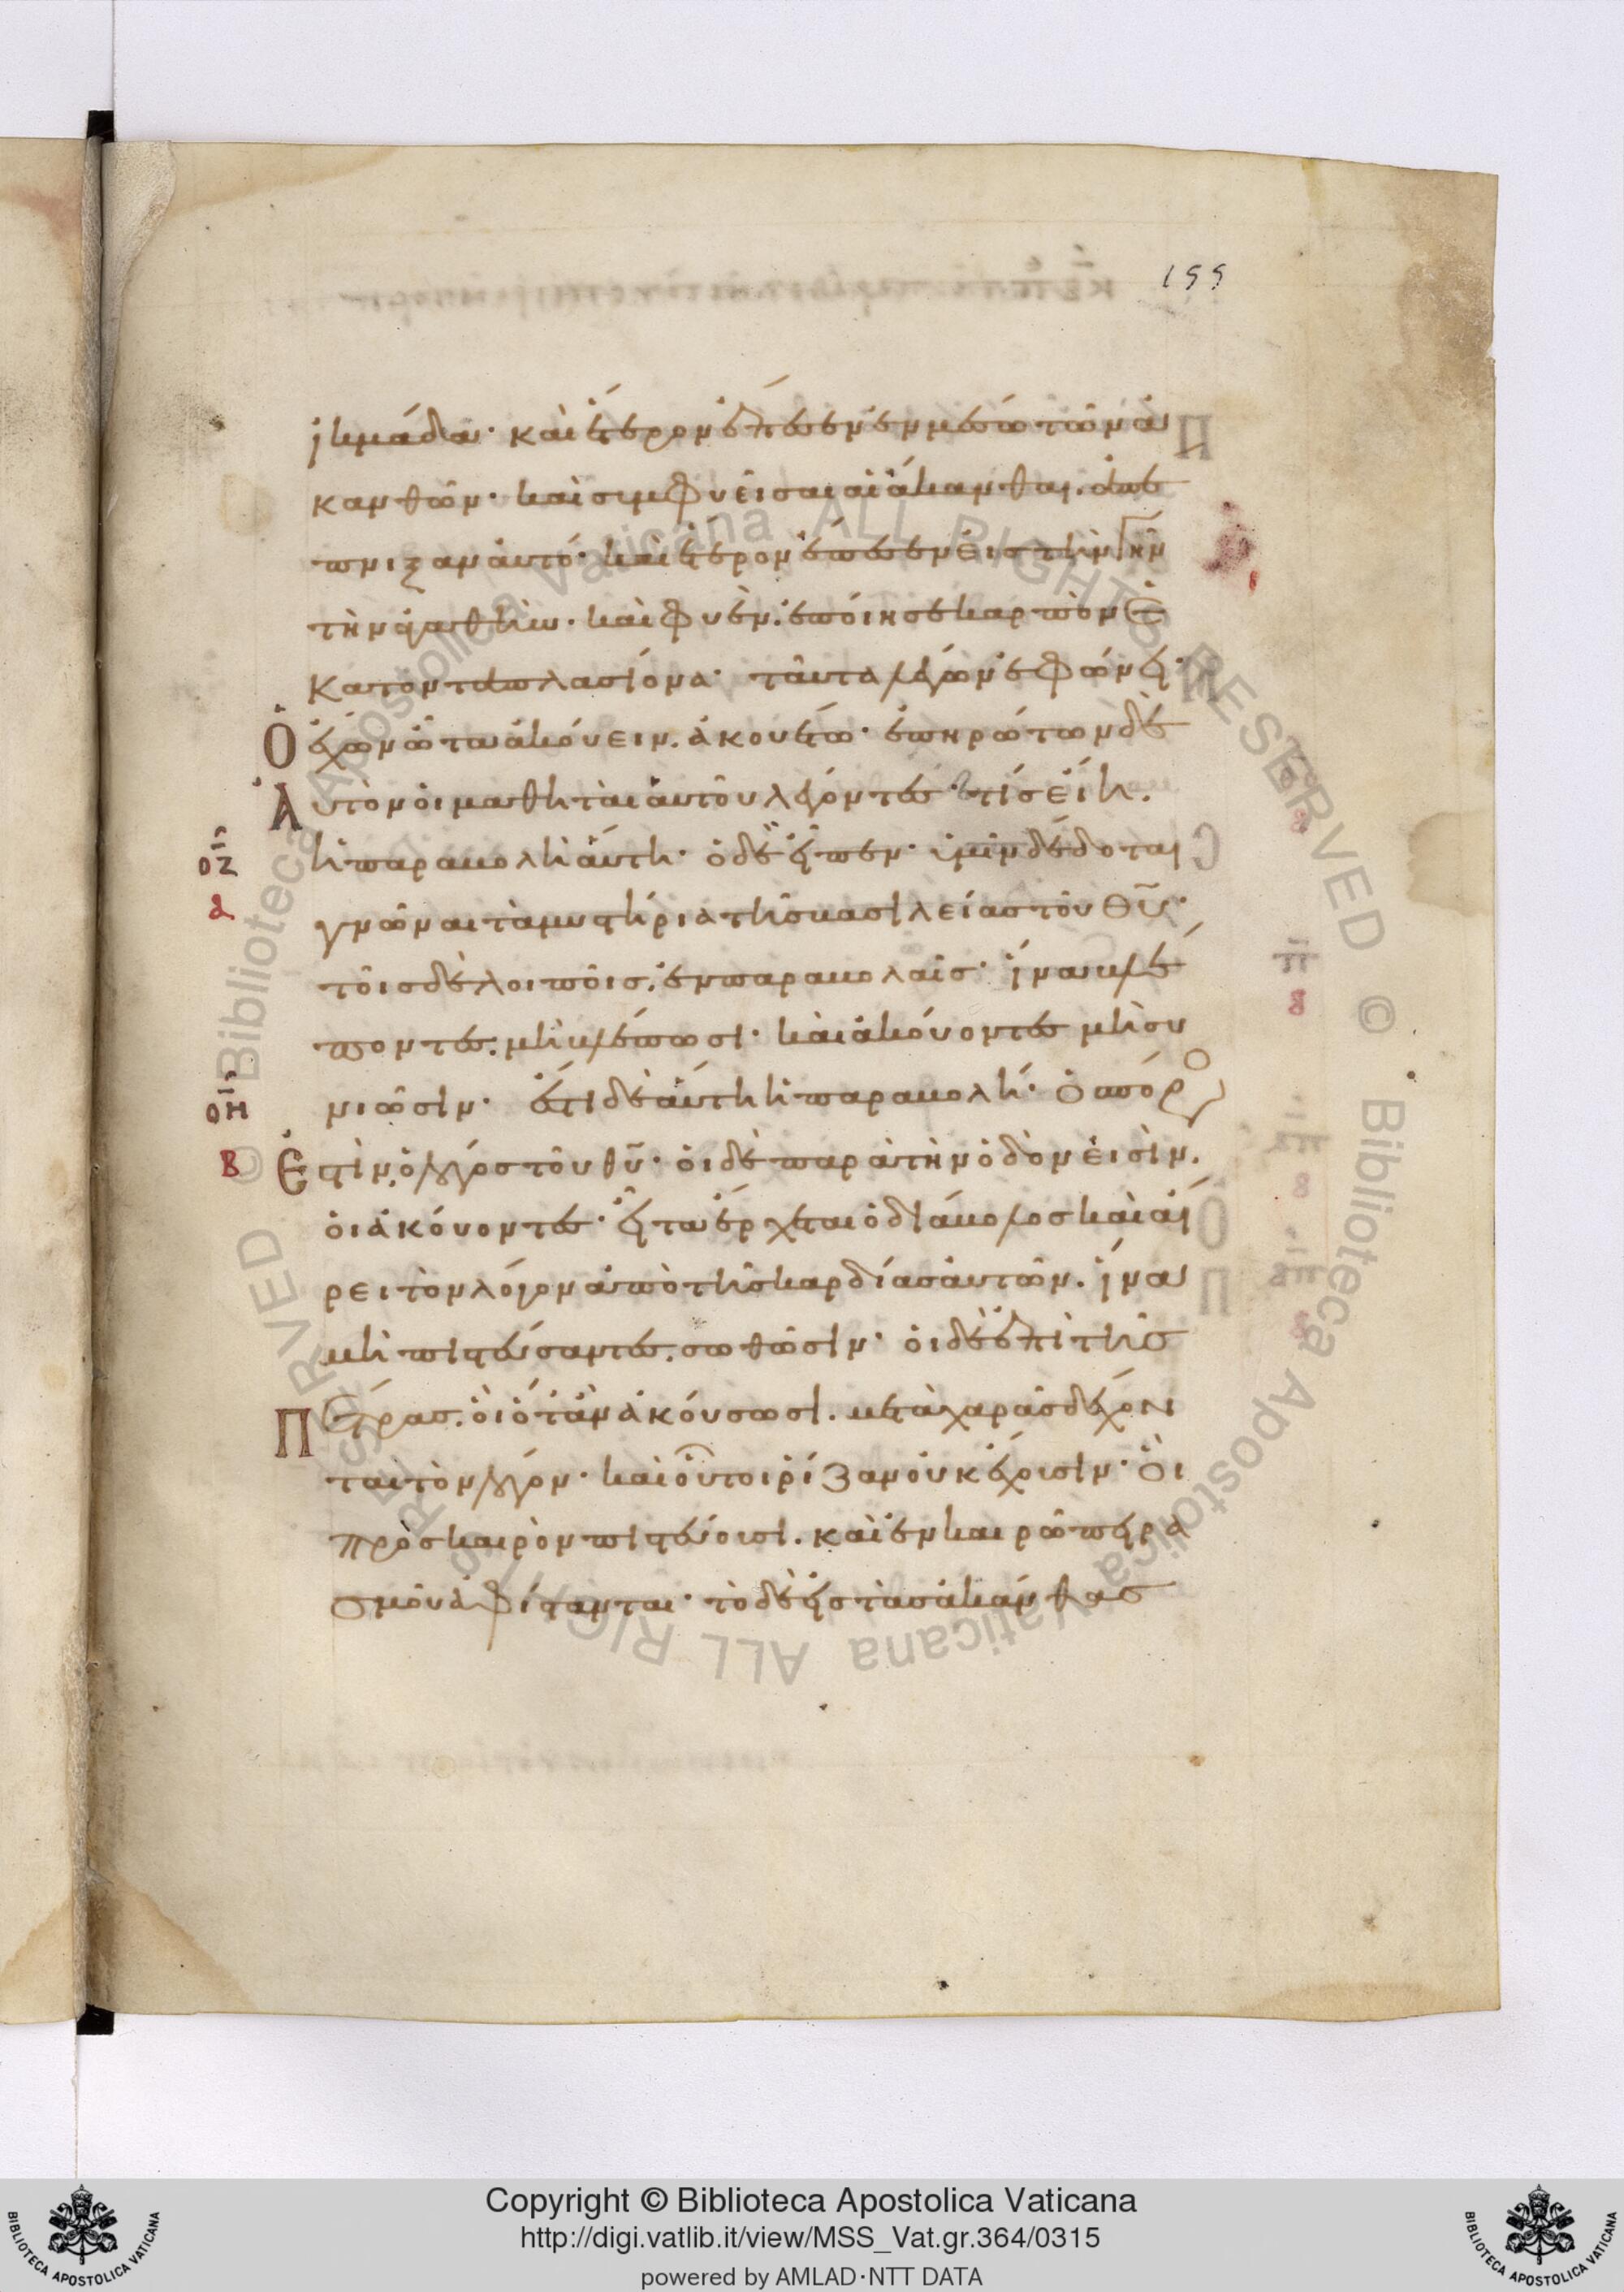 155
ἰκμάδα· καὶ ἕτερον ἔπεσεν ἐν μέσω τῶν ἀ
κανθῶν· καὶ συμφυεῖσαι αἱ ἄκανθαι. ἀπέ
πνιξαν αὐτό· καὶ ἕτερον ἔπεσεν εἰς τὴν γῆν
τὴν ἀγαθὴν· καὶ φυὲν. ἐποίησε καρπὸν ἑ
κατονταπλασίονα· ταῦτα λέγων ἐφώνει·
Ὁ ἔχων ὦτα ἀκούειν. ἀκουέτω· ἐπηρώτων δὲ
Αὐτὸν οἱ μαθηταὶ αὐτοῦ λέγοντες· τίς εἴη.
ἡ παραβολὴ αὕτη· ὁ δὲ εἶπεν· ὑμῖν δέδοται
γνῶναι τὰ μυστήρια τῆς βασιλείας τοῦ θυ·
τοῖς δὲ λοιποῖς. ἐν παραβολαῖς· ἵνα βλέ
ποντες. μὴ βλέπωσι· καὶ ἀκούοντες μὴ συ
νιῶσιν· ἔστι δὲ αὕτη ἡ παραβολή· ὁ σπόρος
Ἐστὶν. ὁ λόγος τοῦ θυ· οἱ δὲ παρὰ τὴν ὁδὸν εἰσὶν.
οἱ ἀκούοντες· εἶτα ἔρχεται ὁ διάβολος καὶ αἴ
ρει τὸν λόγον ἀπὸ τῆς καρδίας αὐτῶν. ἵνα
μὴ πιστεύσαντες. σωθῶσιν· οἱ δὲ ἐπὶ τῆς
Πέτρας. οἳ ὅταν ἀκούσωσι. μετὰ χαρᾶς δέχον
ται τὸν λόγον· καὶ οὗτοι ῥίζαν οὐκ ἔχουσιν· οἳ
πρὸς καιρὸν πιστεύουσι. καὶ ἐν καιρῶ πειρα
σμοῦ ἀφίστανται· τὸ δὲ εἰς τὰς ἀκάνθας
οζ
α
οη
β
© Biblioteca Apostolica Vaticana ALL RIGHTS RESERVED © Biblioteca Apostolica Vaticana ALL RIGHTS RESERVED
BIBLIOTECA APOSTOLICA VATICANA
Copyright © Biblioteca Apostolica Vaticana
http://digi.vatlib.it/view/MSS_Vat.gr.364/0315
powered by AMLAD·NTT DATA
BIBLIOTECA APOSTOLICA VATICANA